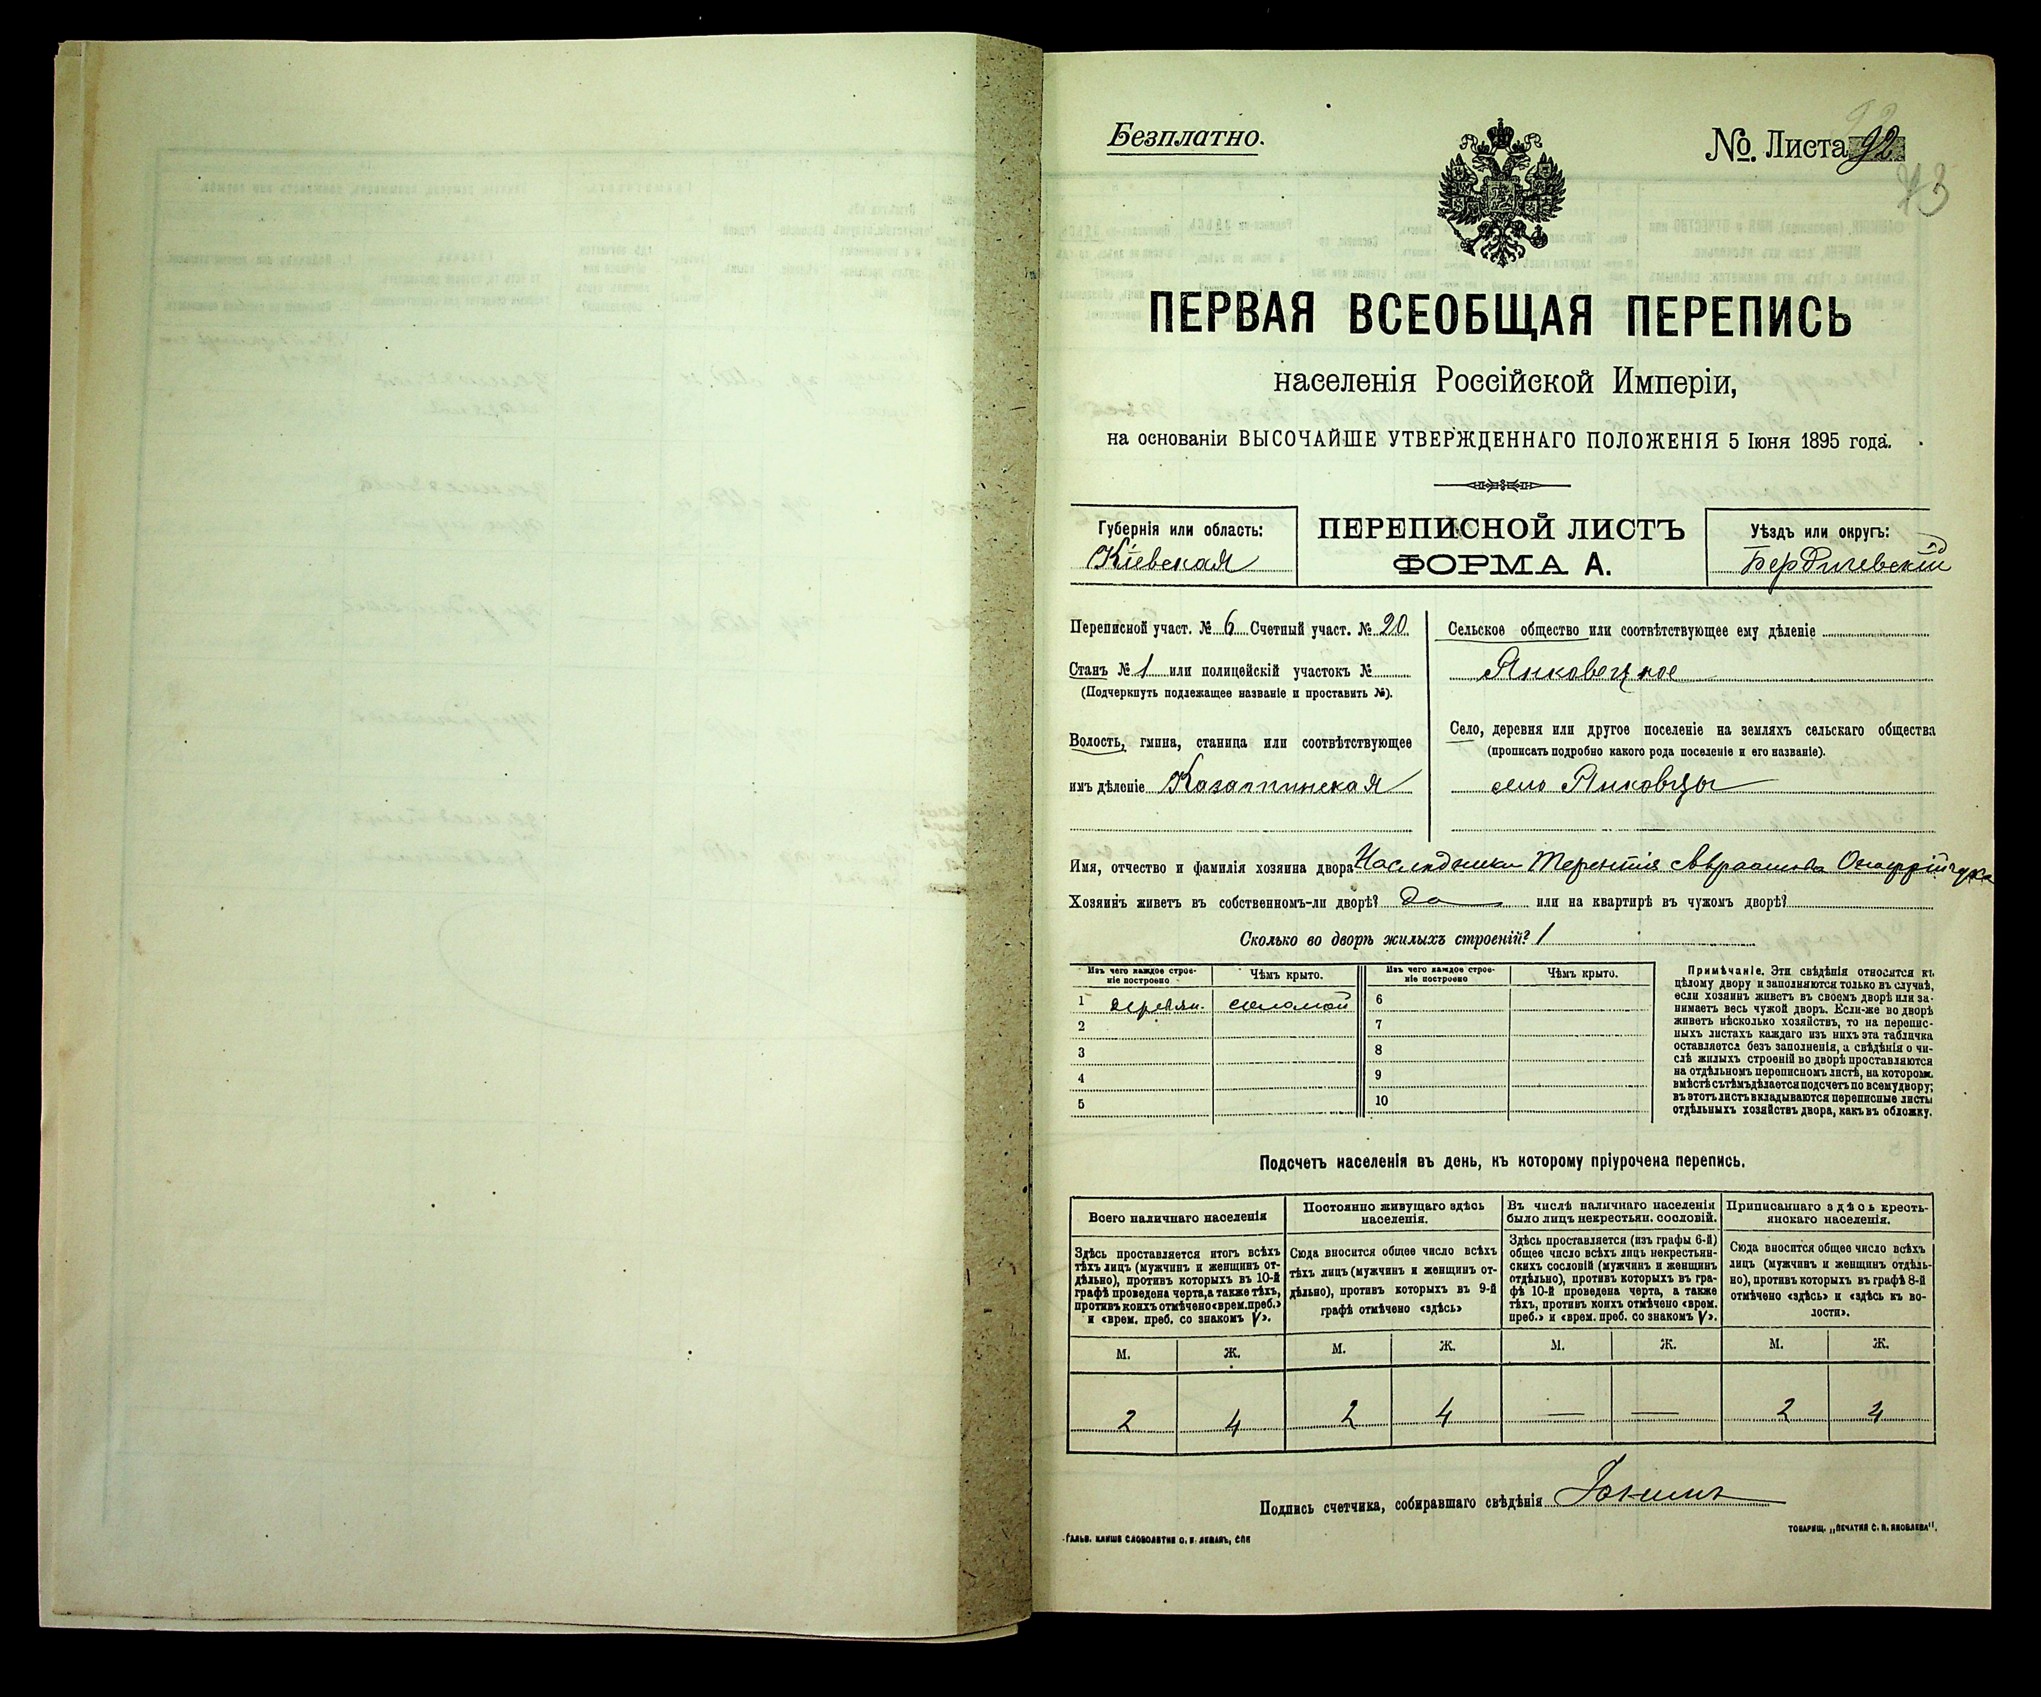 Безплатно.
№. Листа 92
73
ПЕРВАЯ ВСЕОБЩАЯ ПЕРЕПИСЬ
населенія Россійской Имперіи,
на основаніи ВЫСОЧАЙШЕ УТВЕРЖДЕННАГО ПОЛОЖЕНІЯ 5 Іюня 1895 года.
Губернія или область:
Кіевская
ПЕРЕПИСНОЙ ЛИСТЪ
ФОРМА А.
Уѣздъ или округъ:
Бердичевскій
Переписной участ. № 6 Счетный участ. № 20
Станъ № 1 или полицейскій участокъ №
(Подчеркнуть подлежащее названіе и проставить №).
Волость, гмина, станица или соотвѣтствующее
имъ дѣленіе Казатинская
Сельское общество или соотвѣтствующее ему дѣленіе
Янковецкое
Село, деревня или другое поселеніе на земляхъ сельскаго общества
(прописать подробно какого рода поселеніе и его названіе).
село Янковцы
Имя, отчество и фамилія хозяина двора Наслѣдники Терентія Авраамова Онофрійчука
Хозяинъ живетъ въ собственномъ-ли дворѣ? да или на квартирѣ въ чужомъ дворѣ?
Сколько во дворѣ жилыхъ строеній? 1
Изъ чего каждое строе-
ніе построено
Чѣмъ крыто.
Изъ чего каждое строе-
ніе построено
Чѣмъ крыто.
1 деревян. соломой 6
2 7
3 8
4 9
5 10
Примѣчаніе. Эти свѣдѣнія относятся къ
цѣлому двору и заполняются только въ случаѣ,
если хозяинъ живетъ въ своемъ дворѣ или за-
нимаетъ весь чужой дворъ. Если-же во дворѣ
живетъ нѣсколько хозяйствъ, то на перепис-
ныхъ листахъ каждаго изъ нихъ эта табличка
оставляется безъ заполненія, а свѣдѣнія о чи-
слѣ жилыхъ строеній во дворѣ проставляются
на отдѣльномъ переписномъ листѣ, на которомъ
вмѣстѣ съ тѣмъ дѣлается подсчетъ по всему двору;
въ этотъ листъ вкладываются переписные листы
отдѣльныхъ хозяйствъ двора, какъ въ обложку.
Подсчетъ населенія въ день, къ которому пріурочена перепись.
Всего наличнаго населенія
Здѣсь проставляется итогъ всѣхъ
тѣхъ лицъ (мужчинъ и женщинъ от-
дѣльно), противъ которыхъ въ 10-й
графѣ проведена черта, а также тѣхъ,
противъ коихъ отмѣчено «врем. преб.»
и «врем. преб. со знакомъ V».
Постоянно живущаго здѣсь
населенія.
Сюда вносится общее число всѣхъ
тѣхъ лицъ (мужчинъ и женщинъ от-
дѣльно), противъ которыхъ въ 9-й
графѣ отмѣчено «здѣсь»
Въ числѣ наличнаго населенія
было лицъ некрестьян. сословій.
Здѣсь проставляется (изъ графы 6-й)
общее число всѣхъ лицъ некрестьян-
скихъ сословій (мужчинъ и женщинъ
отдѣльно), противъ которыхъ въ гра-
фѣ 10-й проведена черта, а также
тѣхъ, противъ коихъ отмѣчено «врем.
преб.» и «врем. преб. со знакомъ V».
Приписаннаго здѣсь кресть-
янскаго населенія.
Сюда вносится общее число всѣхъ
лицъ (мужчинъ и женщинъ отдѣль-
но), противъ которыхъ въ графѣ 8-й
отмѣчено «здѣсь» и «здѣсь къ во-
лости».
М. Ж. М. Ж. М. Ж. М. Ж.
2 4 2 4 — — 2 4
Подпись счетчика, собиравшаго свѣдѣнія
Гальв. клише словолитни О. И. Леманъ, СПБ
ТОВАРИЩ. „ПЕЧАТНЯ С. П. ЯКОВЛЕВА".